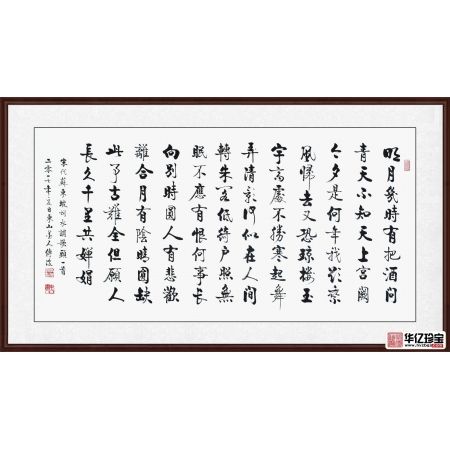 明月幾時有把酒問
青天不知天上宮闕
今夕是何年我欲乘
風歸去又恐瓊樓玉
宇高處不勝寒起舞
弄清影何似在人間
轉朱閣低綺户照無
眠不應有恨何事長
向別時圓人有悲歡
離合月有陰晴圓缺
此事古難全但願人
長久千里共嬋娟
宋代蘇東坡詞水調歌頭一首
华亿珍宝